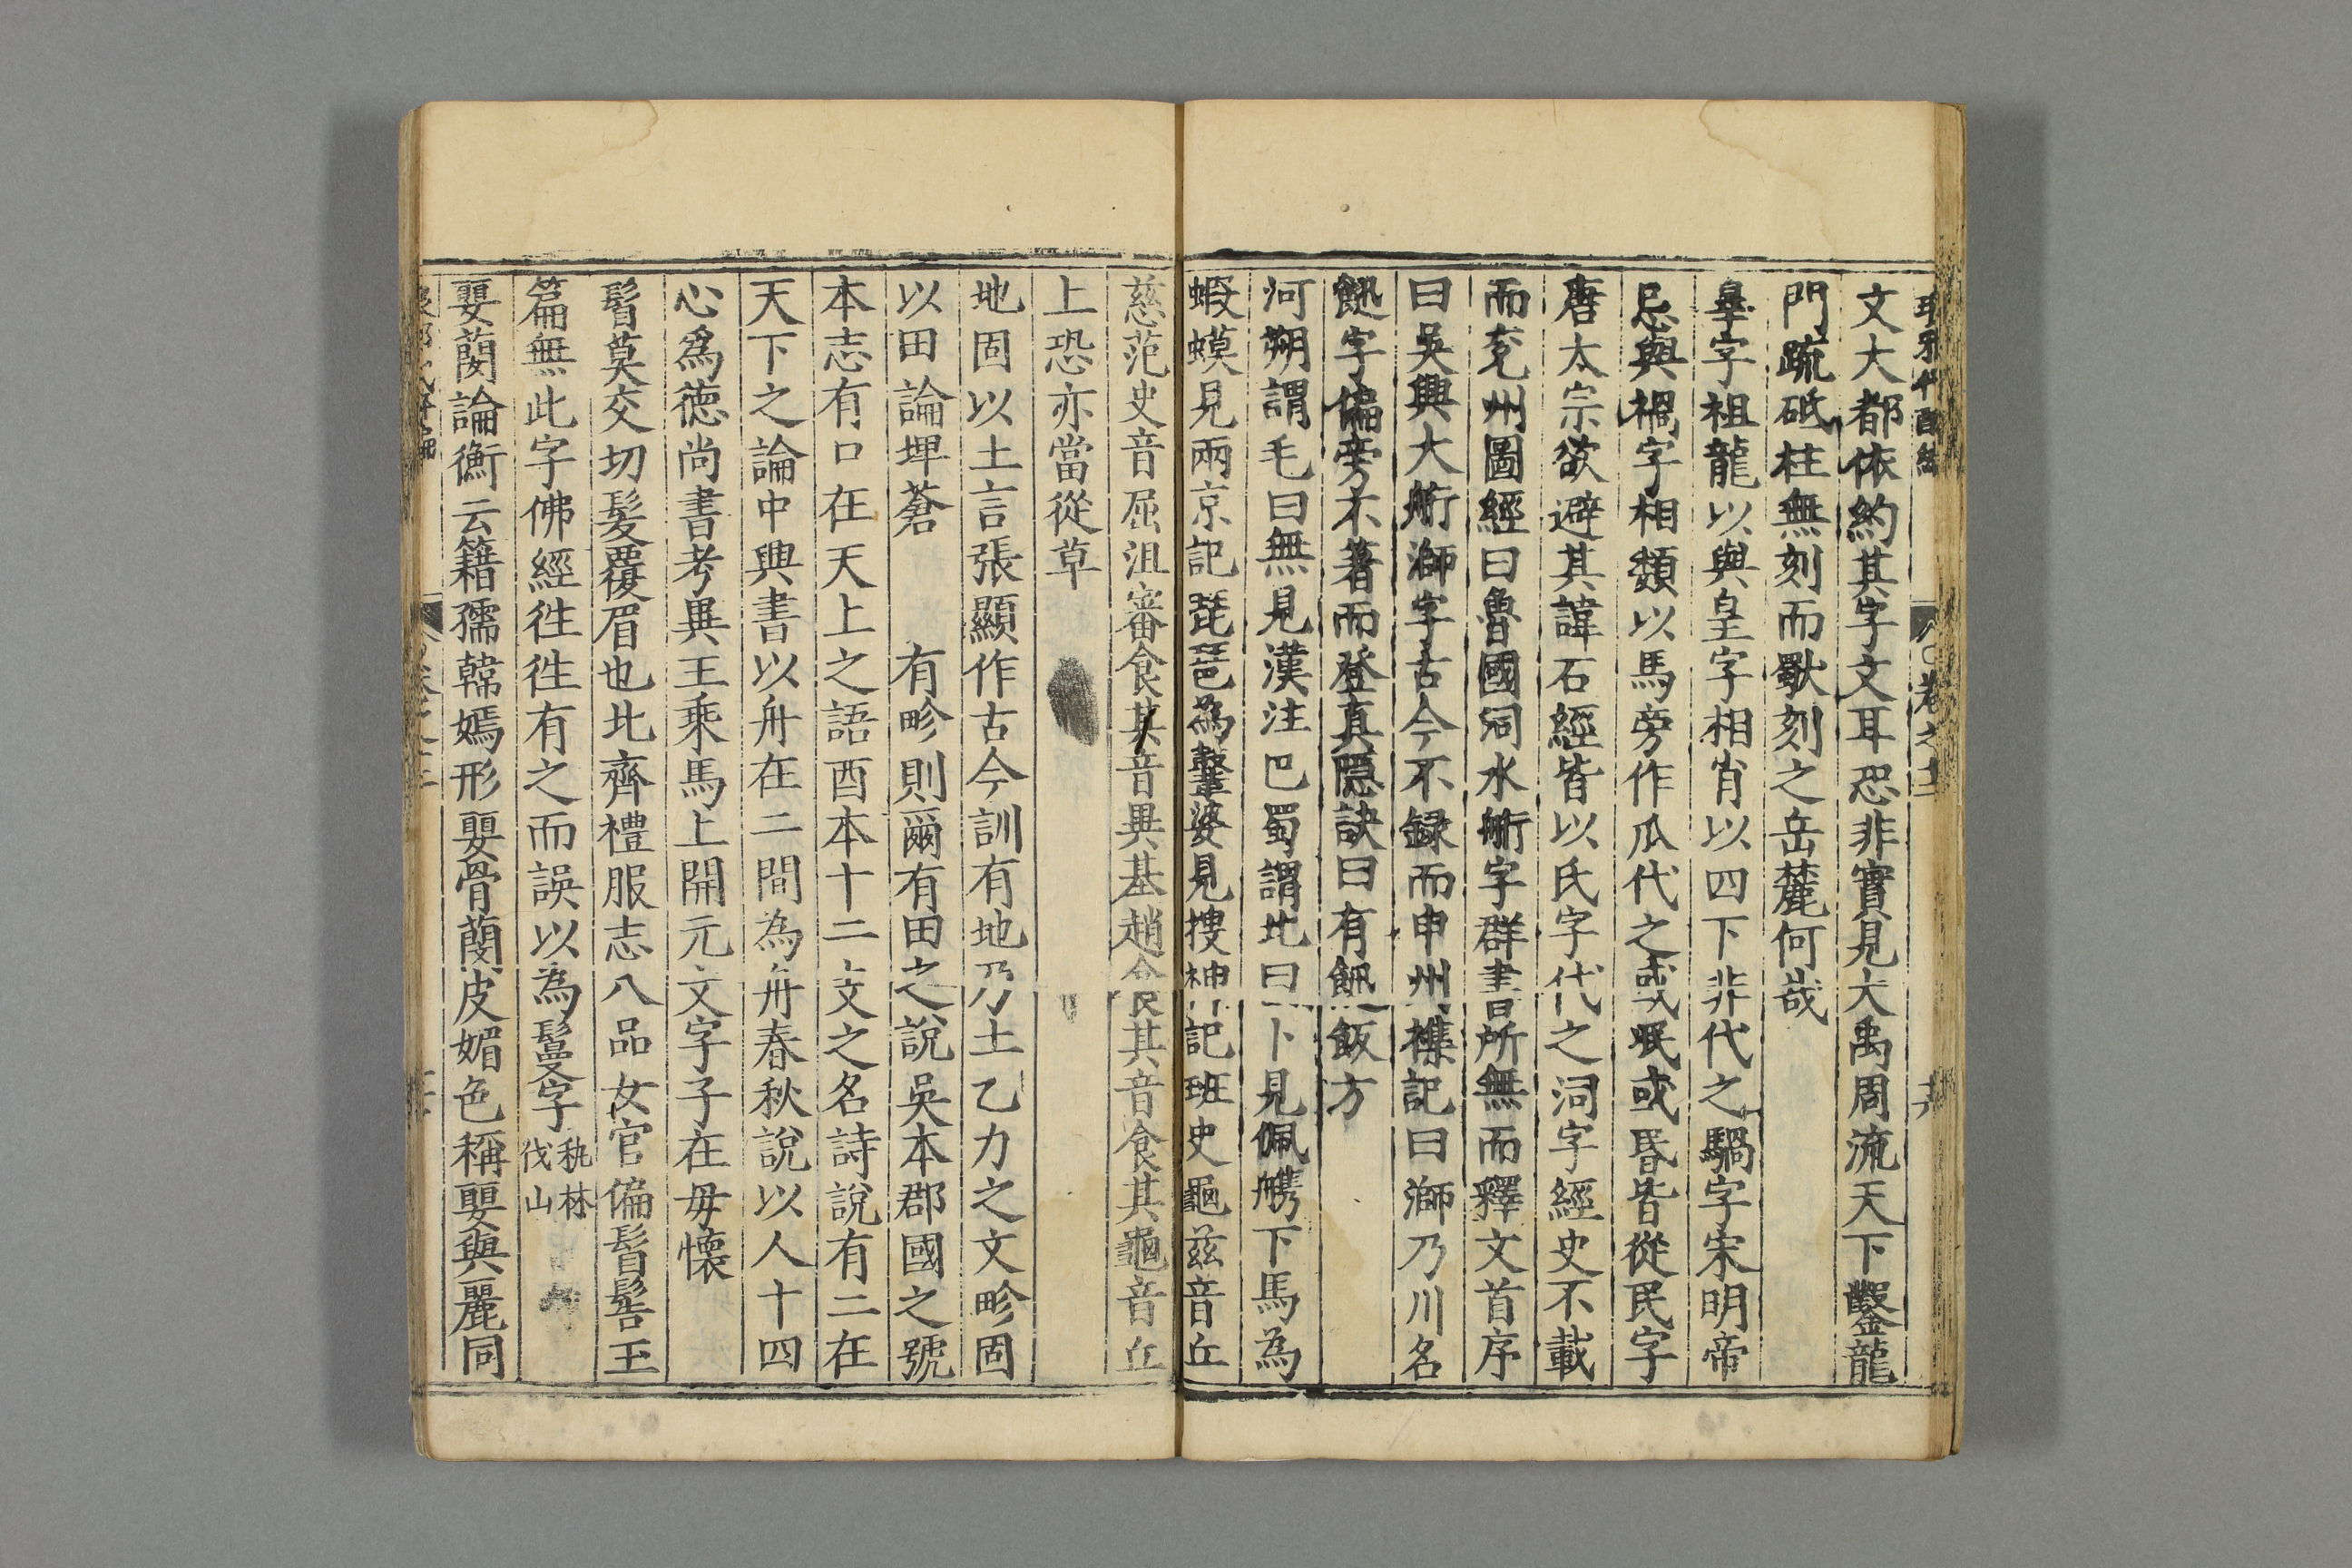 卷之
文大都依約其字文耳恐非實見大禹周流天下鑿龍
門疏砥柱無刻而獨刻之岳麓何哉
辠字祖龍以與皇字相肖以四下非代之騧字宋明帝
忌與禍字相類以馬旁作瓜代之或𣱅或昬皆從民字
唐太宗欲避其諱石經皆以氏字代之泀字經史不載
而兖州圖經曰魯國泀水䑤字群書所無而釋文首序
曰吳興大䑤㴿字古今不録而申州襍記曰㴿乃川名
字偏旁不著而登真隱訣曰有飯方
河朔謂毛曰無見漢注巴蜀謂北曰卜見佩觿下馬為
蝦蟆見兩京記琵琶為鼙婆見搜神記班史龜兹音丘
慈范史音屈沮審食其音異基趙食其音食其龜音丘
上恐亦當從草
地固以土言張顯作古今訓有地乃土乙力之文畛固
以田論埤蒼有畛則爾有田之說吳本郡國之號
本志有口在天上之語酉本十二文之名詩說有二在
天下之論中興書以舟在二間為舟春秋說以人十四
心為德尚書考異王乘馬上開元文字子在毋懷
髫莫交切髮覆眉也北齊禮服志八品女官偏髫髻玉
篇無此字佛經徃徃有之而誤以為鬘字 秇林伐山
嬰蘭論衡云籍孺韓嫣形嬰骨蘭皮媚色稱嬰與麗同